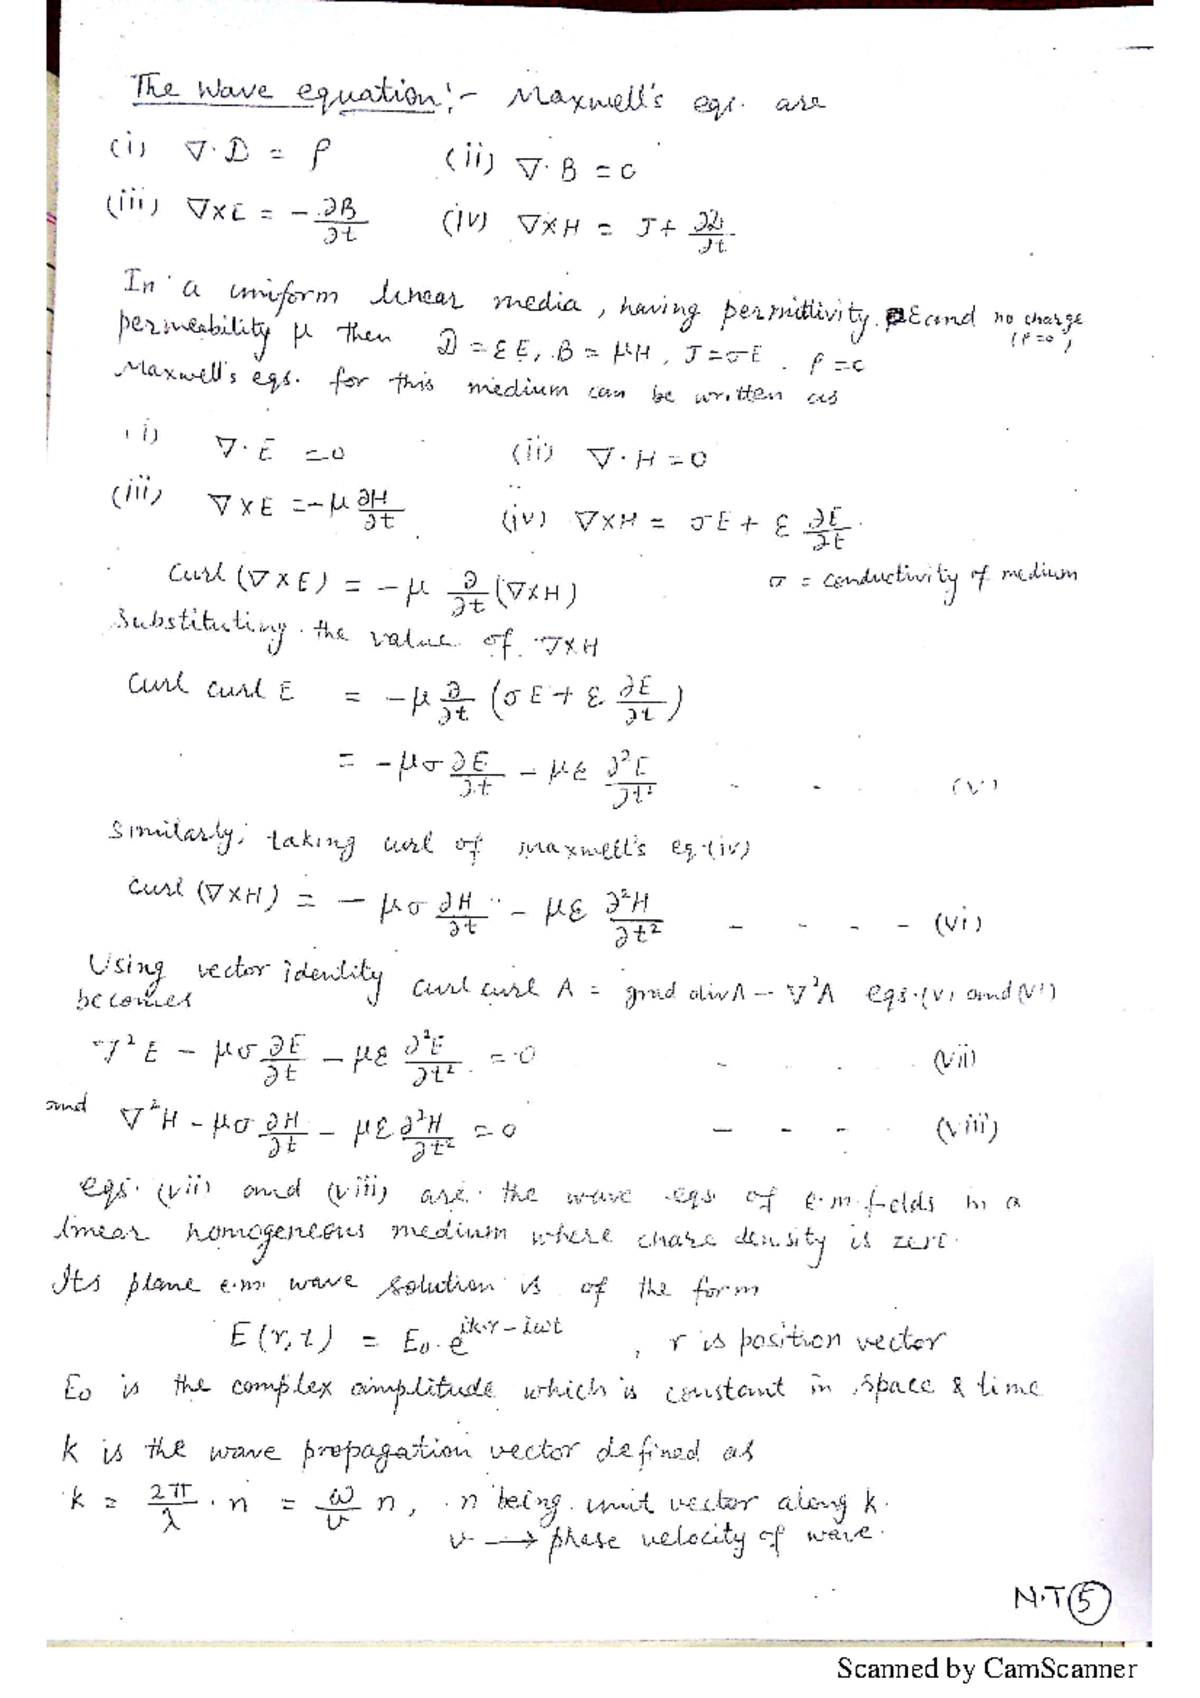 The Wave equation:- Maxwell's eqs. are
(i) ∇·D = ρ (ii) ∇·B = 0
(iii) ∇×E = -∂B/∂t (iv) ∇×H = J + ∂D/∂t
In a uniform linear media, having permittivity ε and no charge (ρ=0)
permeability μ then D = εE, B = μH, J = σE. ρ = 0
Maxwell's eqs. for this medium can be written as
(i) ∇·E = 0 (ii) ∇·H = 0
(iii) ∇×E = -μ ∂H/∂t (iv) ∇×H = σE + ε ∂E/∂t
curl (∇×E) = -μ ∂/∂t (∇×H) σ = conductivity of medium
Substituting the value of ∇×H
curl curl E = -μ ∂/∂t (σE + ε ∂E/∂t)
= -μσ ∂E/∂t - με ∂²E/∂t² - - (v)
Similarly, taking curl of maxwell's eq.(iv)
curl (∇×H) = - μσ ∂H/∂t - με ∂²H/∂t² - - - - (vi)
Using vector identity curl curl A = grad div A - ∇²A eqs.(v) and (vi)
becomes
∇²E - μσ ∂E/∂t - με ∂²E/∂t² = 0 - - - - (vii)
and ∇²H - μσ ∂H/∂t - με ∂²H/∂t² = 0 - - - - (viii)
eqs. (vii) and (viii) are the wave eqs of e.m. fields in a
linear homogeneous medium where chare density is zero.
Its plane e.m. wave solution is of the form
E(r,t) = E₀·e^{ik·r-iωt} , r is position vector
E₀ is the complex amplitude which is constant in space & time
k is the wave propagation vector defined as
k = 2π/λ · n = ω/v n, n being unit vector along k.
v → phase velocity of wave.
N.T (5)
Scanned by CamScanner